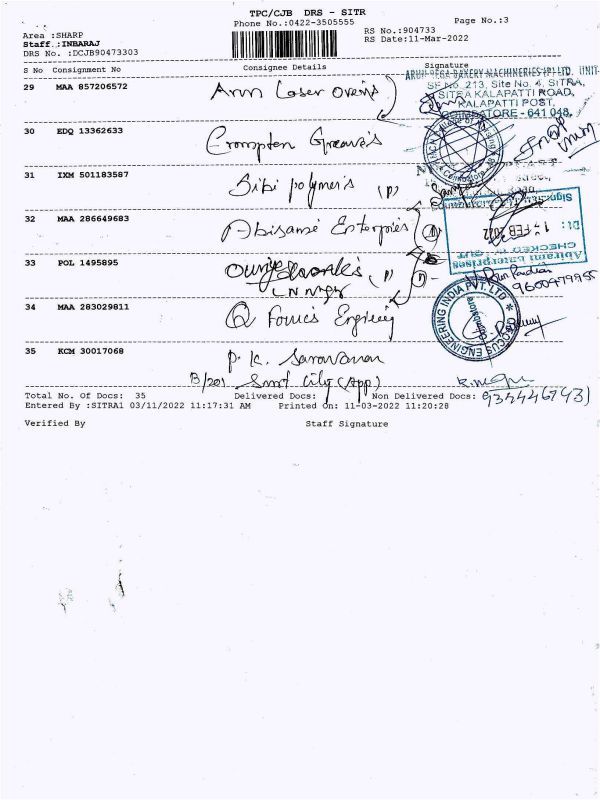 TPC/CJB DRS - SITR
Phone No.:0422-3505555
Page No.:3
Area :SHARP
RS No.:904733
Staff.:INBARAJ
RS Date:11-Mar-2022
DRS No. :DCJB90473303
S No Consignment No Consignee Details Signature
ARUN MEGA BAKERY MACHINERIES (P) LTD. UNIT-
29 MAA 857206572
SF No. 213, Site No. 4, SITRA,
SITRA KALAPATTI ROAD,
KALAPATTI POST,
COIMBATORE - 641 048.
30 EDQ 13362633 Crompton Greaves
31 IXM 501183587 Bibi polymers (P)
32 MAA 286649683 Abisami Enterpries
17 FEB 2022
CHECKED
Abirami Enterprises
33 POL 1495895
9600479955
34 MAA 283029811 Q Foucis Enginerig
Q FOCUS ENGINEERING INDIA PVT. LTD
Coimbatore
35 KCM 30017068 P. K. Saravanan
B/201 Smrt City (App)
Total No. Of Docs: 35 Delivered Docs: Non Delivered Docs:
Entered By :SITRA1 03/11/2022 11:17:31 AM Printed On: 11-03-2022 11:20:28
Verified By Staff Signature